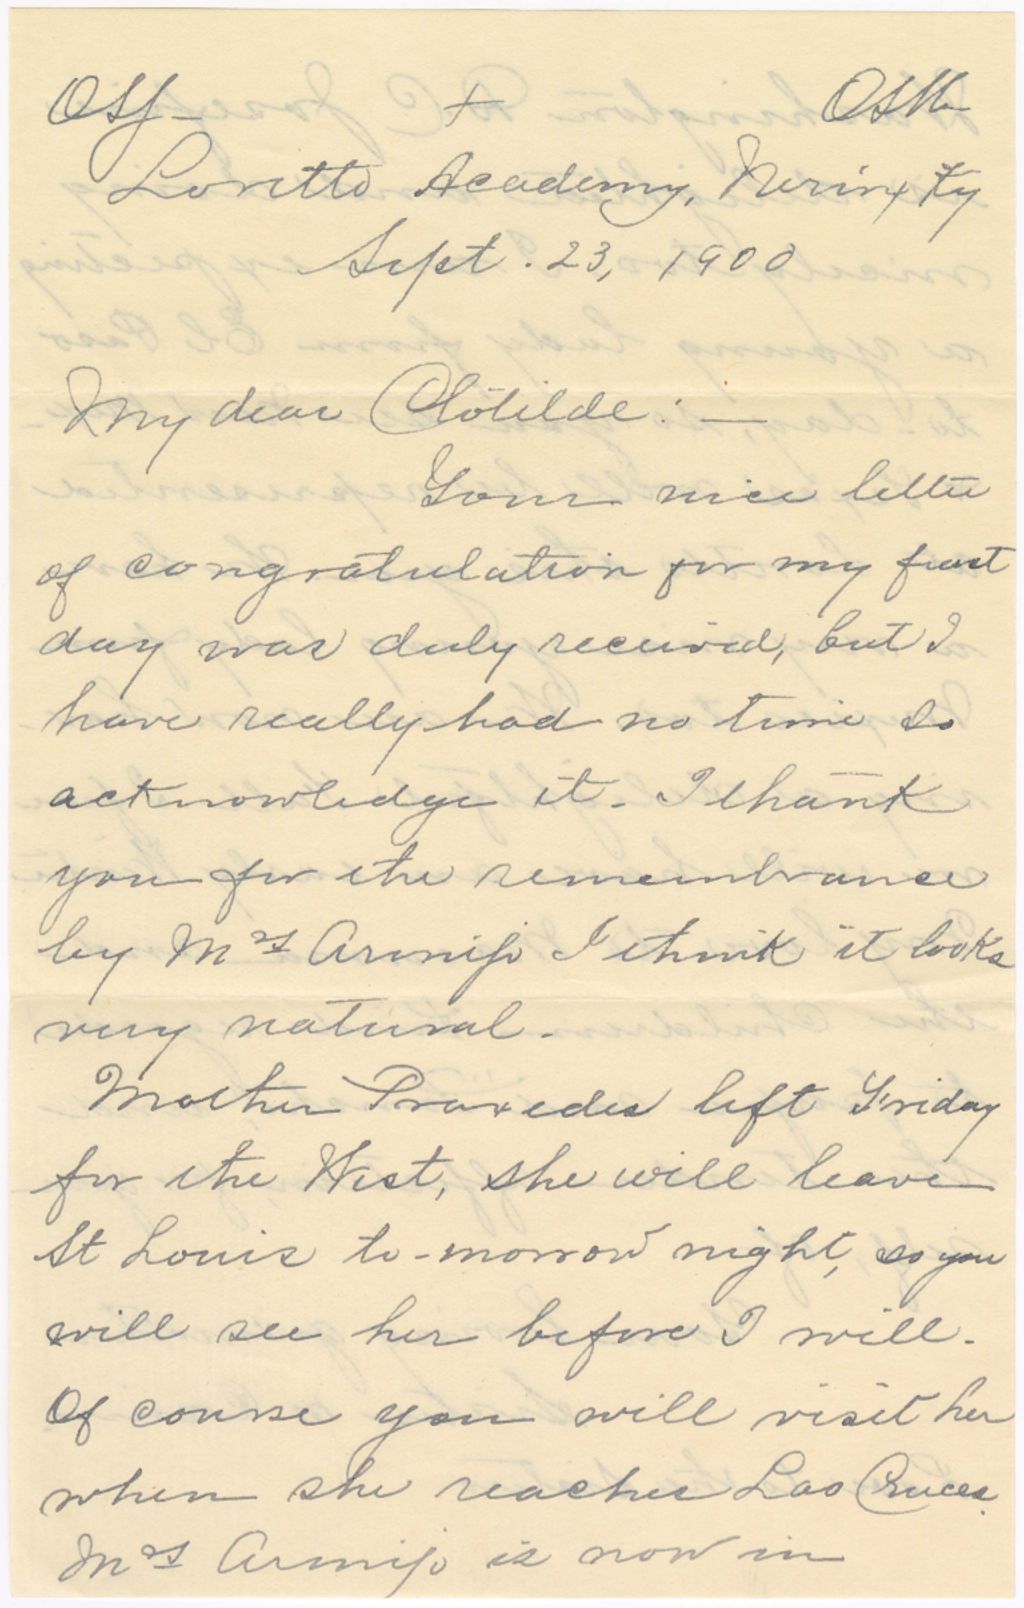 OSJ- + OSM
Loretto Academy, Nerinx Ky
Sept. 23, 1900
My dear Clotilde: —
Your nice letter
of congratulation for my feast
day was duly received, but I
have really had no time to
acknowledge it. I thank
you for the remembrance
by Mrs Armijo I think it looks
very natural.
Mother Praxedes left Friday
for the West, she will leave
St Louis to-morrow night, so you
will see her before I will.
Of course you will visit her
when she reaches Las Cruces.
Mrs Armijo is now in